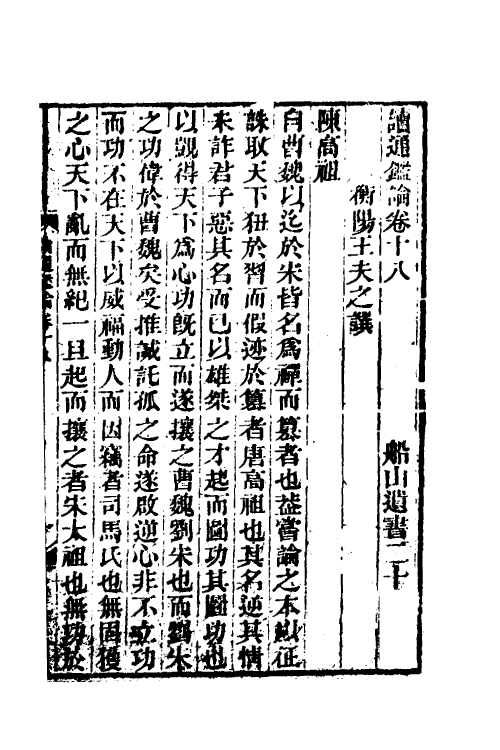 讀通鑑論卷十八 船山遺書二十
衡陽王夫之譔
陳高祖
自曹魏以迄於宋皆名爲禪而篡者也蓋嘗論之本以征
誅取天下狃於習而假迹於篡者唐高祖也其名逆其情
未詐君子惡其名而已以雄桀之才起而圖功其圖功也
以覬得天下爲心功旣立而遂攘之曹魏劉朱也而劉朱
之功偉於曹魏矣受推誠託孤之命遂啟逆心非不立功
而功不在天下以威福動人而因竊者司馬氏也無固獲
之心天下亂而無紀一旦起而攘之者朱太祖也無功於